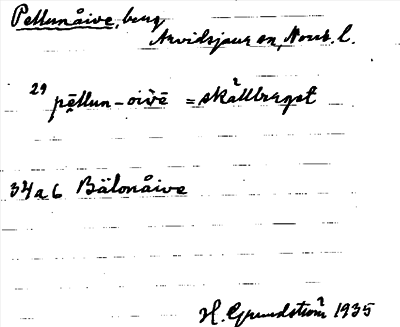 Pellunåive, berg
Arvidsjaur sn, Norrb. l.
29 pēllun-oiv̀ē = skällberget
34 a 6 Bälonåive
H. Grundström 1935